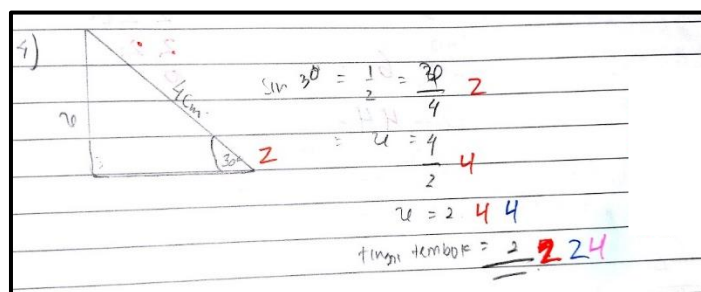 4)
4cm
30°
2
sin 30 = 1/2 = /4 2
= u = 4/2 4
u = 2 4 4
tinggi tembok = 2 2 2 4